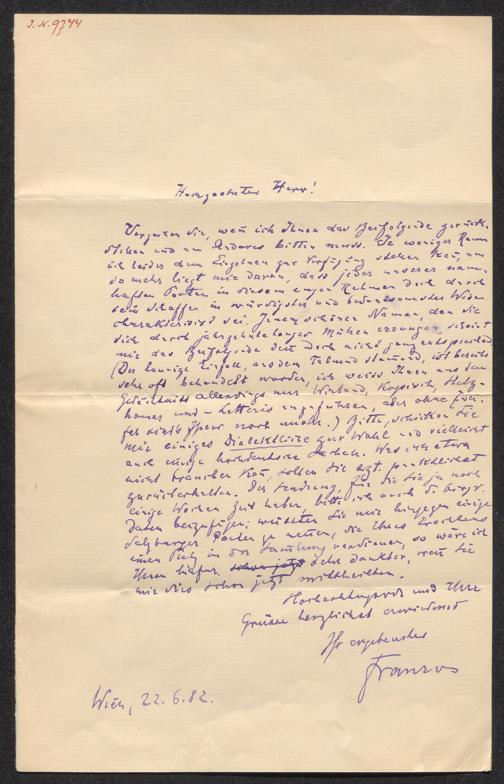 J. N. 9744
Hochgeehrter Herr!
Verzeihen Sie, wenn ich Ihnen das Beifolgende zurück-
schicken und um Anderes bitten muss. Je weniger Raum
ich leider dem Einzelnen zur Verfügung stellen kann, um
so mehr liegt mir daran, dass jeder unserer nam-
haften Poeten in diesem engen Rahmen doch durch
sein Schaffen in würdigster und bedeutsamster Weise
charakterisirt sei. Jenem schönen Namen, den Sie
sich durch jahrzehntelanges Mühen errungen, scheint
mir das Beifolgende denn doch nicht ganz entsprechend.
(Der launige Einfall, aus dem Talmud stammend, ist bereits
sehr oft behandelt worden, ich weiss Ihnen aus dem
Gedächtniss allerdings nur Wieland, Kapsvich,
und – Letteris anzuführen, aber ohne Zwei-
fel noch mehr.) Bitte, schicken Sie
mir einiges Dialektliche zur Wahl und vielleicht
auch einige hochdeutsche Sachen. Was ich etwa
nicht brauchen kann, sollen Sie pünktlichst
zurückerhalten. Der Sendung, für die Sie ja noch
einige Wochen Zeit haben, bitte ich auch die biogr.
Daten beizufügen; wüssten Sie mir hingegen einige
Salzburger Poeten zu nennen, die Ihres Erachtens
einen Platz in der Sammlung verdienen, so wäre ich
Ihnen sehr dankbar, wenn Sie
mir dies schon jetzt mittheilten.
Hochachtungsvoll und Ihre
Grüsse herzlichst erwiedernd
Ihr ergebenster
Franzos
Wien, 22. 6. 82.